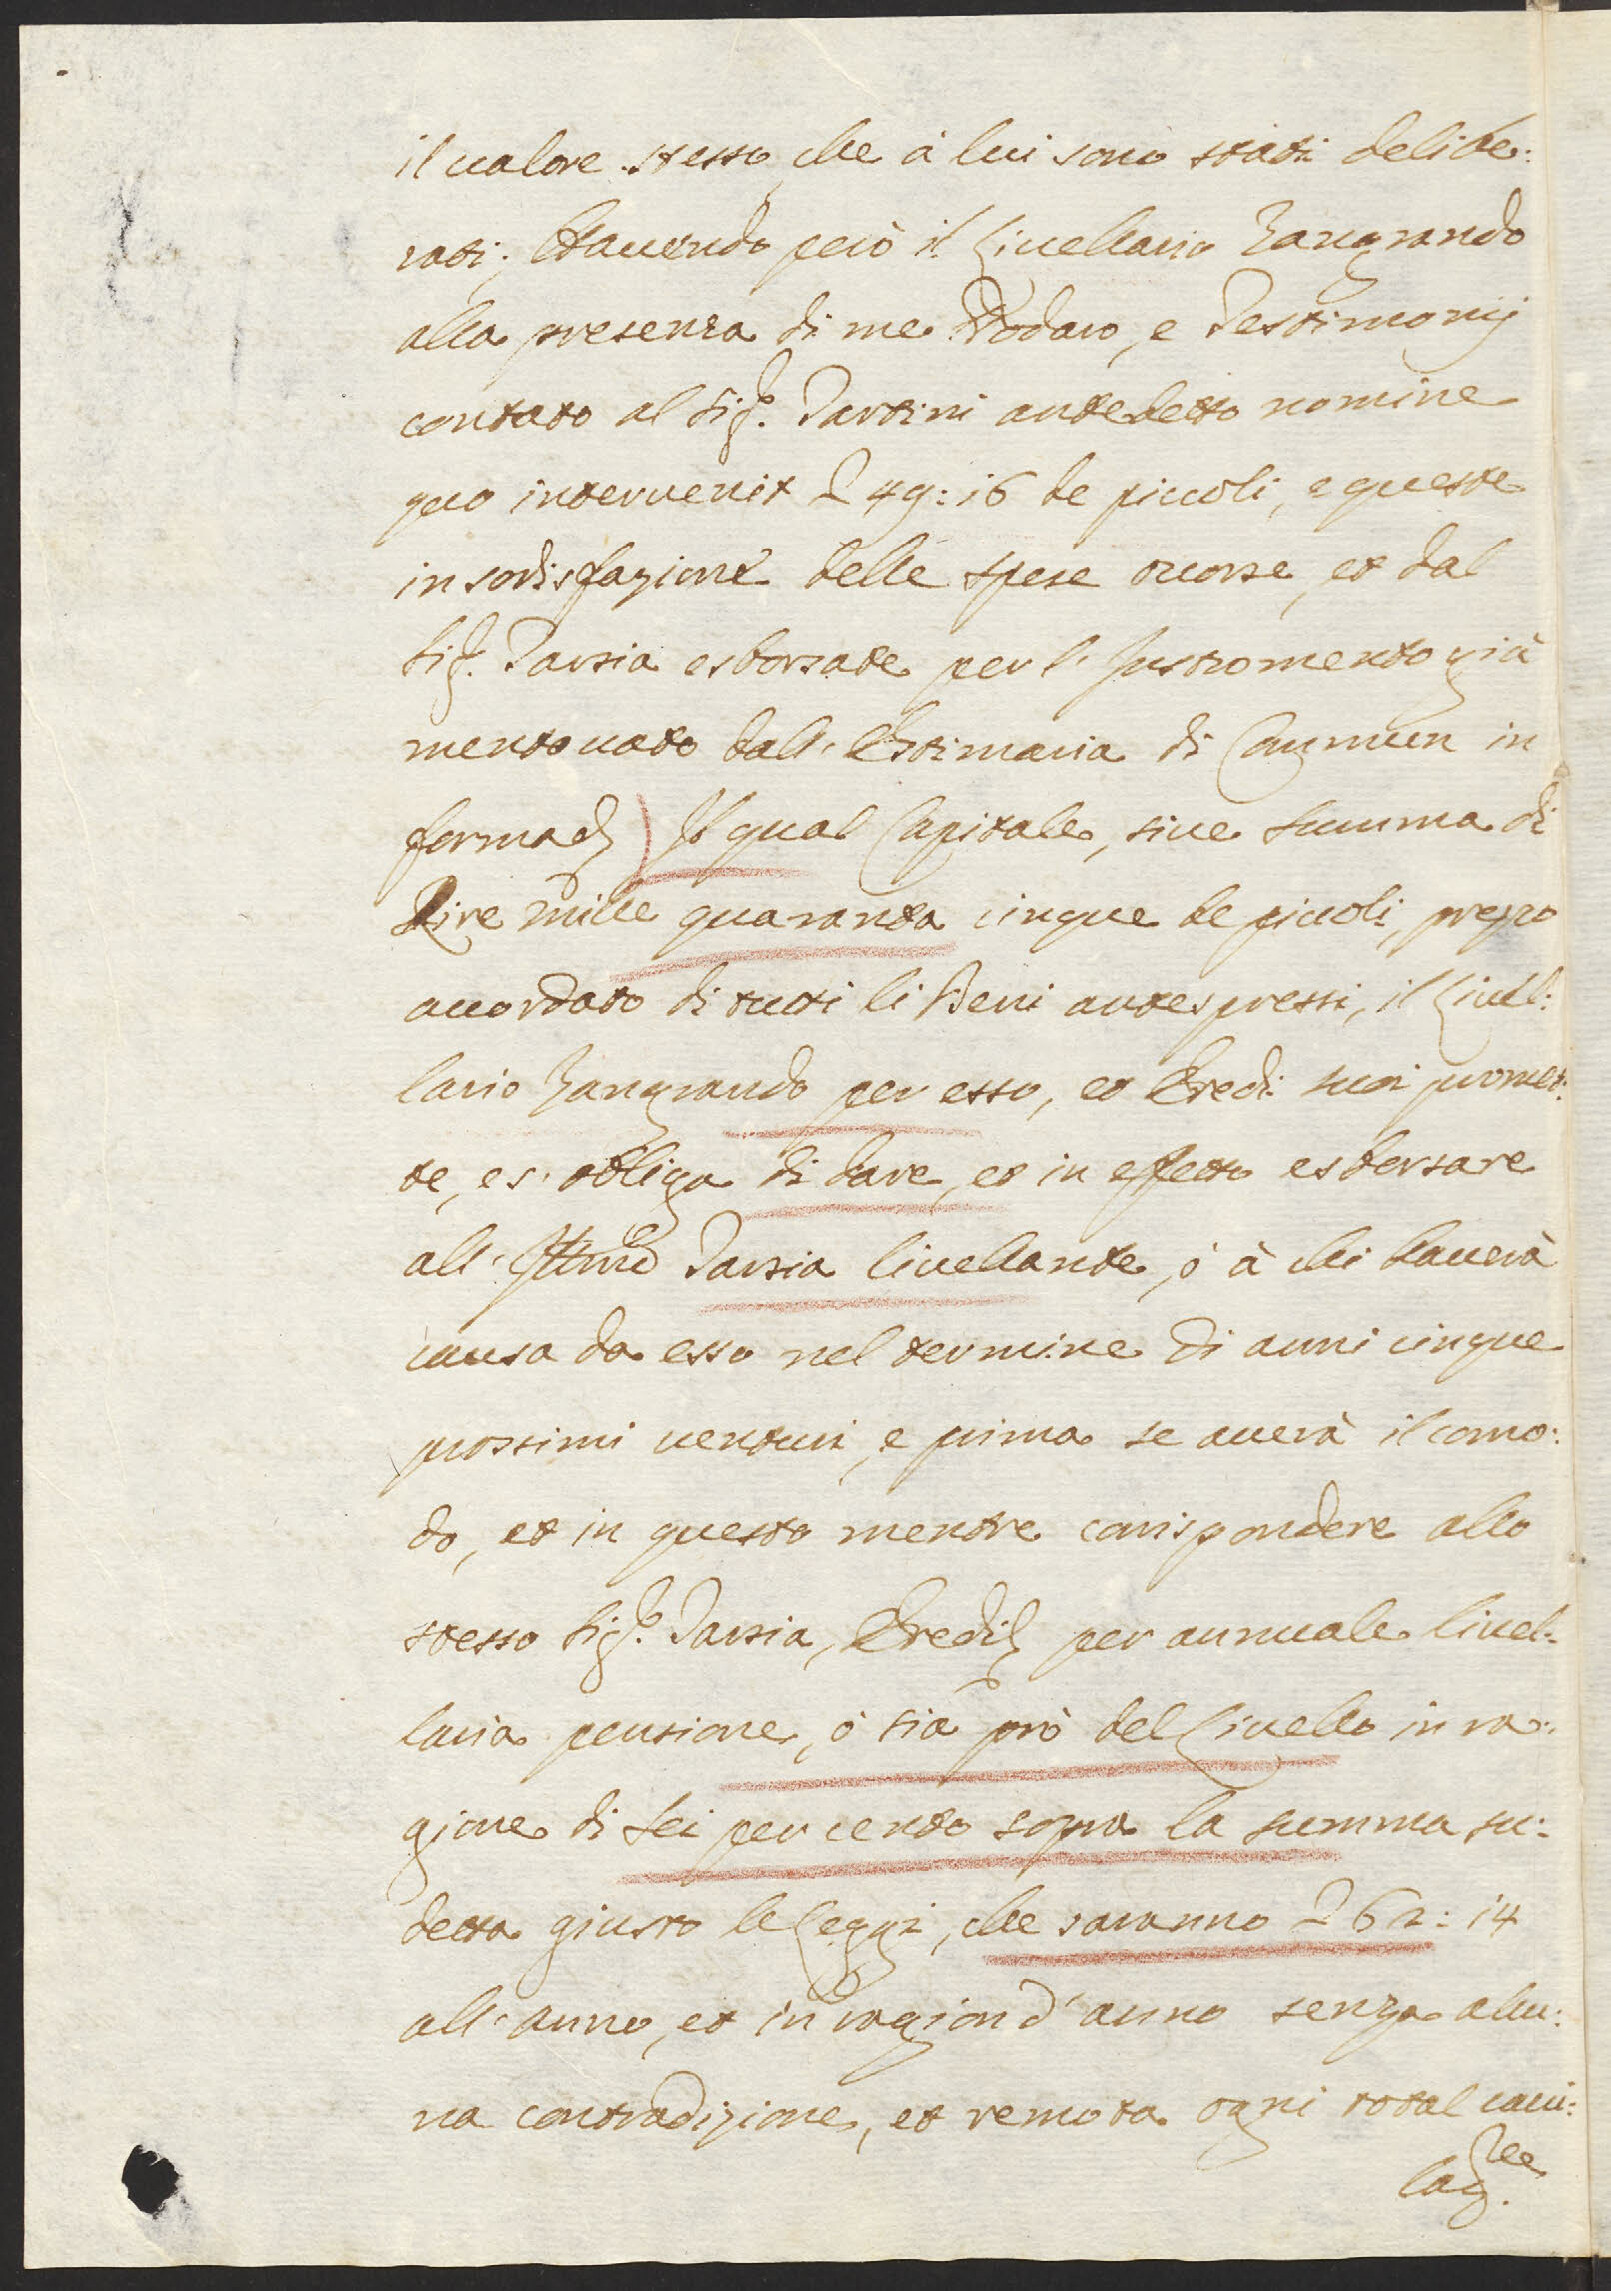 il valore stesso che à lui sono stati delibe:
rati; Havendo però il Livellario Zangrando
alla presenza di me Nodaro, e Testimonij
contato al Sig.r Tartini antedetto nomine
quo intervenit L 49:16 de piccoli, e queste
in sodisfazione delle spese occorse, et dal
Sig.r Tarsia esborsate per l'Instromento già
mentovato dall'Estimaria di Commun in
forma Il qual Capitale, sive summa di
Lire mille quaranta cinque de piccoli, prezzo
accordato di tutti li Beni antespressi, il Livel:
lario Zangrando per esso, et Eredi suoi promet:
te, e s'obliga di dare, et in effetto esborsare
all' Tarsia livellante, ò à chi haverà
causa da esso nel termine di anni cinque
prossimi venturi, e prima se averà il como:
do, et in questo mentre corrispondere allo
stesso Sig.r Tarsia, Eredi per annuale livel:
laria pensione, ò sia prò del Livello in ra:
gione di sei per cento sopra la summa su:
detta giusto le Leggi, che saranno L 62:14
all'anno, et in ragion d'anno senza alcu:
na contradizione, et remota ogni total cavi: